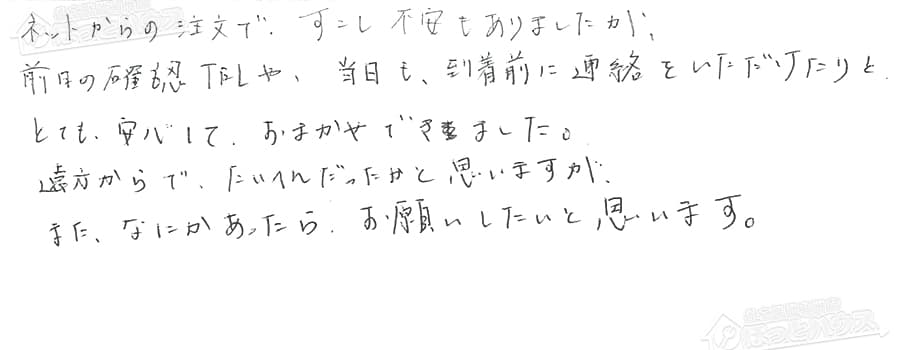 ネットからの注文で、すこし不安もありましたが、
前日の確認TELや、当日も、到着前に連絡をいただけたりと、
とても、安心して、おまかせできました。
遠方からで、たいへんだったかと思いますが、
また、なにかあったら、お願いしたいと思います。